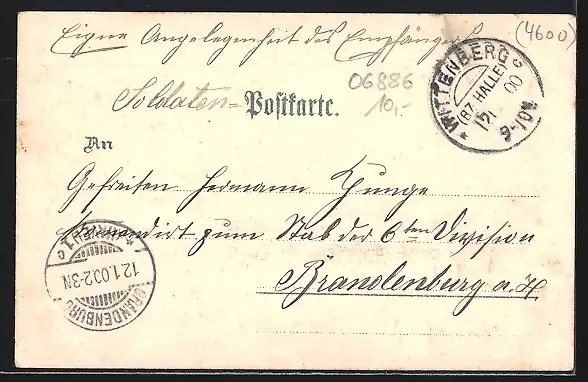 Eigne Angelegenheit des Empfängers
(4600)
06886
10,-
Soldaten=Postkarte.
WITTENBERG
(BZ. HALLE)
12 1 00
9-10V.
An
Gefreiten Hermann Hunge
Kommandirt zum Stab der 6ten Division
Brandenburg a. H.
BRANDENBURG
12.1.00.2-3N
(HAVEL) 1